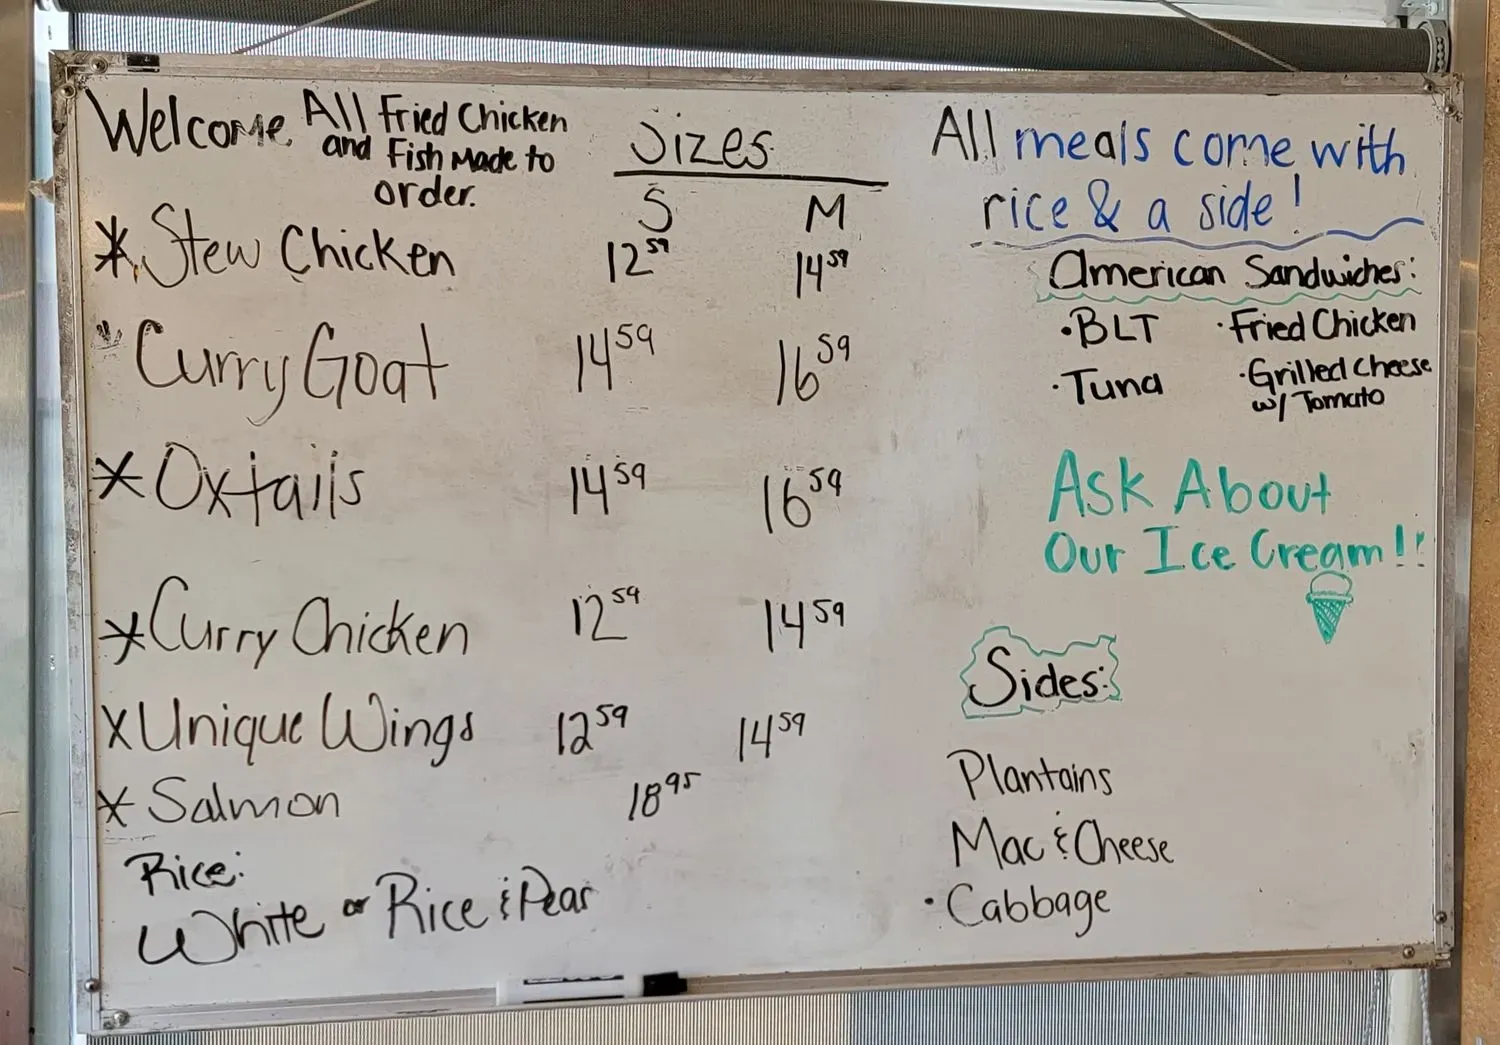 Welcome. All Fried Chicken
and Fish Made to
order.
Sizes
S M
* Stew Chicken 12 59 14 59
* Curry Goat 14 59 16 59
* Oxtails 14 59 16 59
* Curry Chicken 12 59 14 59
X Unique Wings 12 59 14 59
* Salmon 18 95
Rice:
White or Rice & Peas
All meals come with
rice & a side!
American Sandwiches:
• BLT • Fried Chicken
• Tuna • Grilled Cheese
w/ Tomato
Ask About
Our Ice Cream!!
Sides:
Plantains
Mac & Cheese
• Cabbage